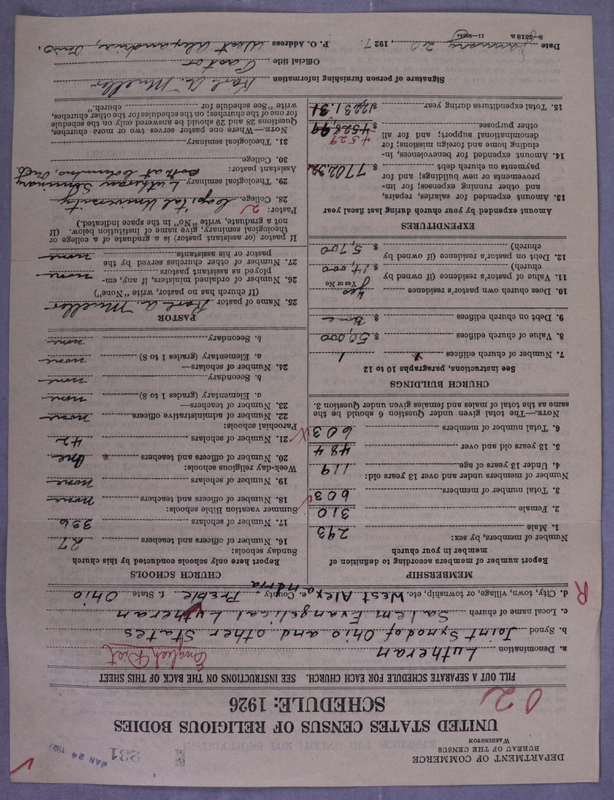 DEPARTMENT OF COMMERCE
BUREAU OF THE CENSUS
WASHINGTON
231
JAN 24 192
UNITED STATES CENSUS OF RELIGIOUS BODIES
SCHEDULE: 1926
02
FILL OUT A SEPARATE SCHEDULE FOR EACH CHURCH. SEE INSTRUCTIONS ON THE BACK OF THIS SHEET
English Dist
a. Denomination Lutheran
b. Synod Joint Synod of Ohio and other States
c. Local name of church Salem Evangelical Lutheran
d. City, town, village, or township, etc. West Alexandria County Preble, State Ohio
R
MEMBERSHIP
Report number of members according to definition of member in your church
Number of members, by sex:
1. Male 293
2. Female 310
3. Total number of members 603
Number of members under and over 13 years old:
4. Under 13 years of age 119
5. 13 years old and over 484
6. Total number of members 603
NOTE.—The total given under Question 6 should be the same as the total of males and females given under Question 3.
CHURCH BUILDINGS
See instructions, paragraphs 10 to 12
7. Number of church edifices 1
8. Value of church edifices $ 50,000
9. Debt on church edifices $ none
10. Does church own pastor's residence yes
(Yes or No)
11. Value of pastor's residence (if owned by church) $ 14,000
12. Debt on pastor's residence (if owned by church) $ 5,700
EXPENDITURES
Amount expended by your church during last fiscal year
13. Amount expended for salaries, repairs, and other running expenses; for improvements or new buildings; and for payments on church debt $ 7702.32
14. Amount expended for benevolences, including home and foreign missions; for denominational support; and for all other purposes $ 4528.99
4529
15. Total expenditures during year 12231.31
CHURCH SCHOOLS
Report here only schools conducted by this church
Sunday schools:
16. Number of officers and teachers 27
17. Number of scholars 326
Summer vacation Bible schools:
18. Number of officers and teachers none
19. Number of scholars none
Week-day religious schools:
20. Number of officers and teachers one
21. Number of scholars 42
Parochial schools:
22. Number of administrative officers none
23. Number of teachers—
a. Elementary (grades 1 to 8) none
b. Secondary none
24. Number of scholars—
a. Elementary (grades 1 to 8) none
b. Secondary none
PASTOR
25. Name of pastor Karl A. Mueller
(If church has no pastor, write "None")
26. Number of ordained ministers, if any, employed as assistant pastors none
27. Number of other churches served by the pastor or his assistants none
If pastor (or assistant pastor) is a graduate of a college or theological seminary, give name of institution below. (If not a graduate, write "No" in the space indicated.)
Pastor: 2
28. College Capital University
29. Theological seminary Lutheran Seminary
both at Columbus, Ohio
Assistant pastor:
30. College
31. Theological seminary
NOTE.—Where one pastor serves two or more churches, Questions 28 and 29 should be answered only on the schedule for one of the churches; on the schedules for the other churches, write "See schedule for church."
Signature of person furnishing information Karl A. Mueller
Official title Pastor
Date January 20, 1927. P. O. Address West Alexandria, Ohio.
8-5518 a